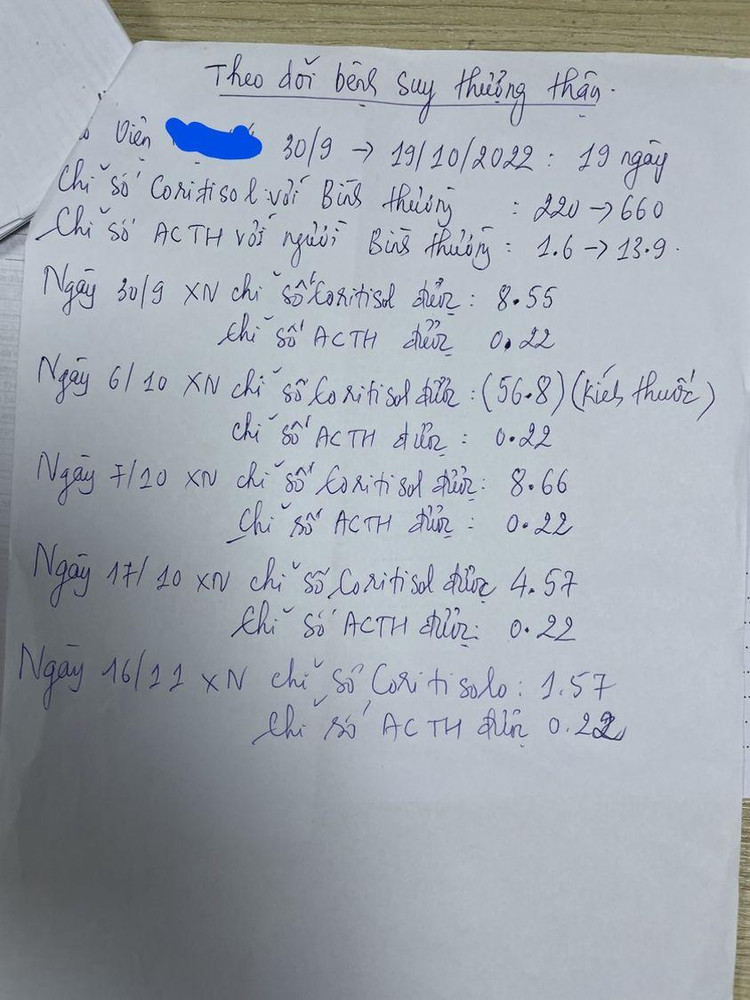 Theo dõi bệnh suy thượng thận.
Viện 30/9 → 19/10/2022 : 19 ngày
Chỉ số Coritisol với Bình thường : 220 → 660
Chỉ số ACTH với người Bình thường : 1.6 → 13.9.
Ngày 30/9 XN chỉ số Coritisol được : 8.55
Chỉ số ACTH được 0.22
Ngày 6/10 XN chỉ số Coritisol được : (56.8) (kích thước)
Chỉ số ACTH được : 0.22
Ngày 7/10 XN chỉ số Coritisol được : 8.66
Chỉ số ACTH được : 0.22
Ngày 17/10 XN chỉ số Coritisol được 4.57
Chỉ số ACTH được: 0.22
Ngày 16/11 XN chỉ số Coritisolo : 1.57
Chỉ số ACTH được 0.22